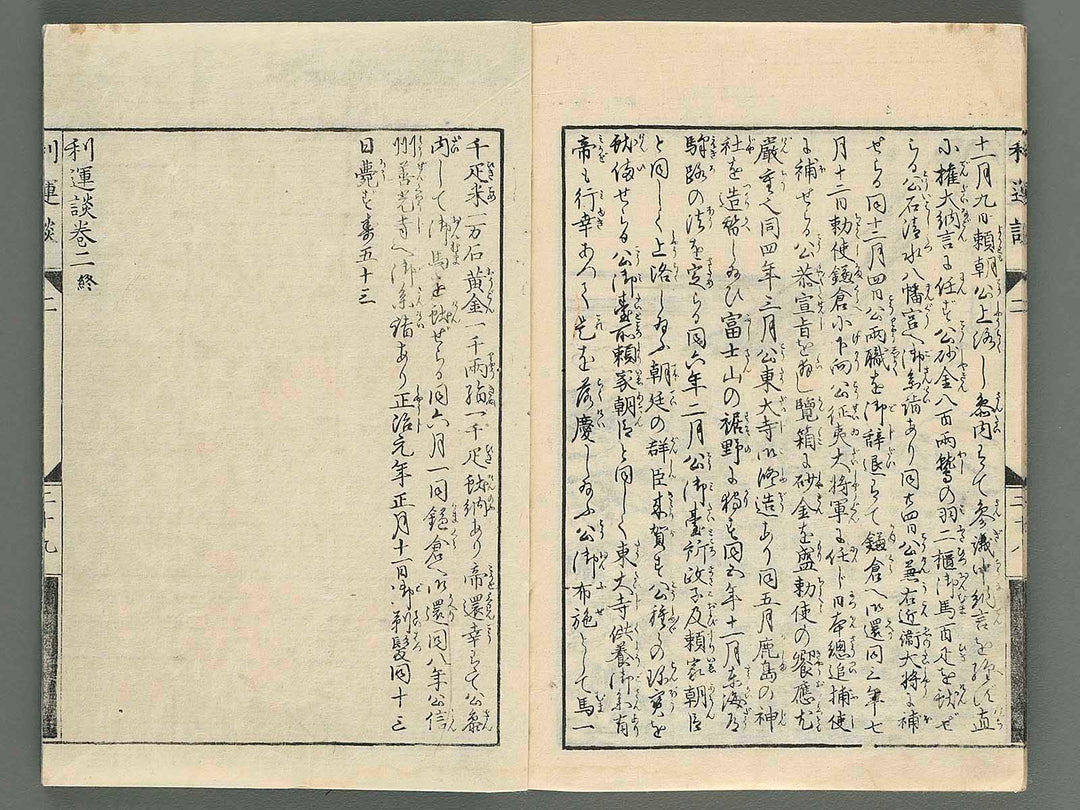 十一月九日頼朝公上洛し参内ありて参議中納言を経て直
に権大納言に任ず公砂金八百両鷲の羽二櫃御馬百疋を献ぜ
らる公石清水八幡宮へ御参詣あり同廿四日公兼右近衛大将に補
せらる同十二月四日公両職を御辞退ありて鎌倉へ御還同三年七
月十二日勅使鎌倉に下向公征夷大将軍に任じ日本総追捕使
に補せらる公恭宣旨を拝し覧箱に砂金を盛勅使の饗應尤
厳重也同四年三月公東大寺御修造あり同五月鹿島の神
社を造替し給ひ富士山の裾野に狩す同五年十一月東海道
駅路の法を定らる同六年二月公御臺所政子及頼家朝臣
と同しく上洛し給ふ朝廷の群臣来賀す公種々の珍寶を
献備せらる公御臺所頼家朝臣と同しく東大寺供養御参有
帝も行幸ありて是を落慶し給ふ公御布施として馬一
千疋米一万石黄金一千両絹一千疋献納あり帝還幸ありて公参
内して御馬を献ぜらる同六月一同鎌倉へ御還同八年公信
州善光寺へ御参詣あり正治元年正月十一日御剃髪同十三
日薨ず寿五十三
利運談巻二終
利運談 二 二十八
利運談 二 二十九